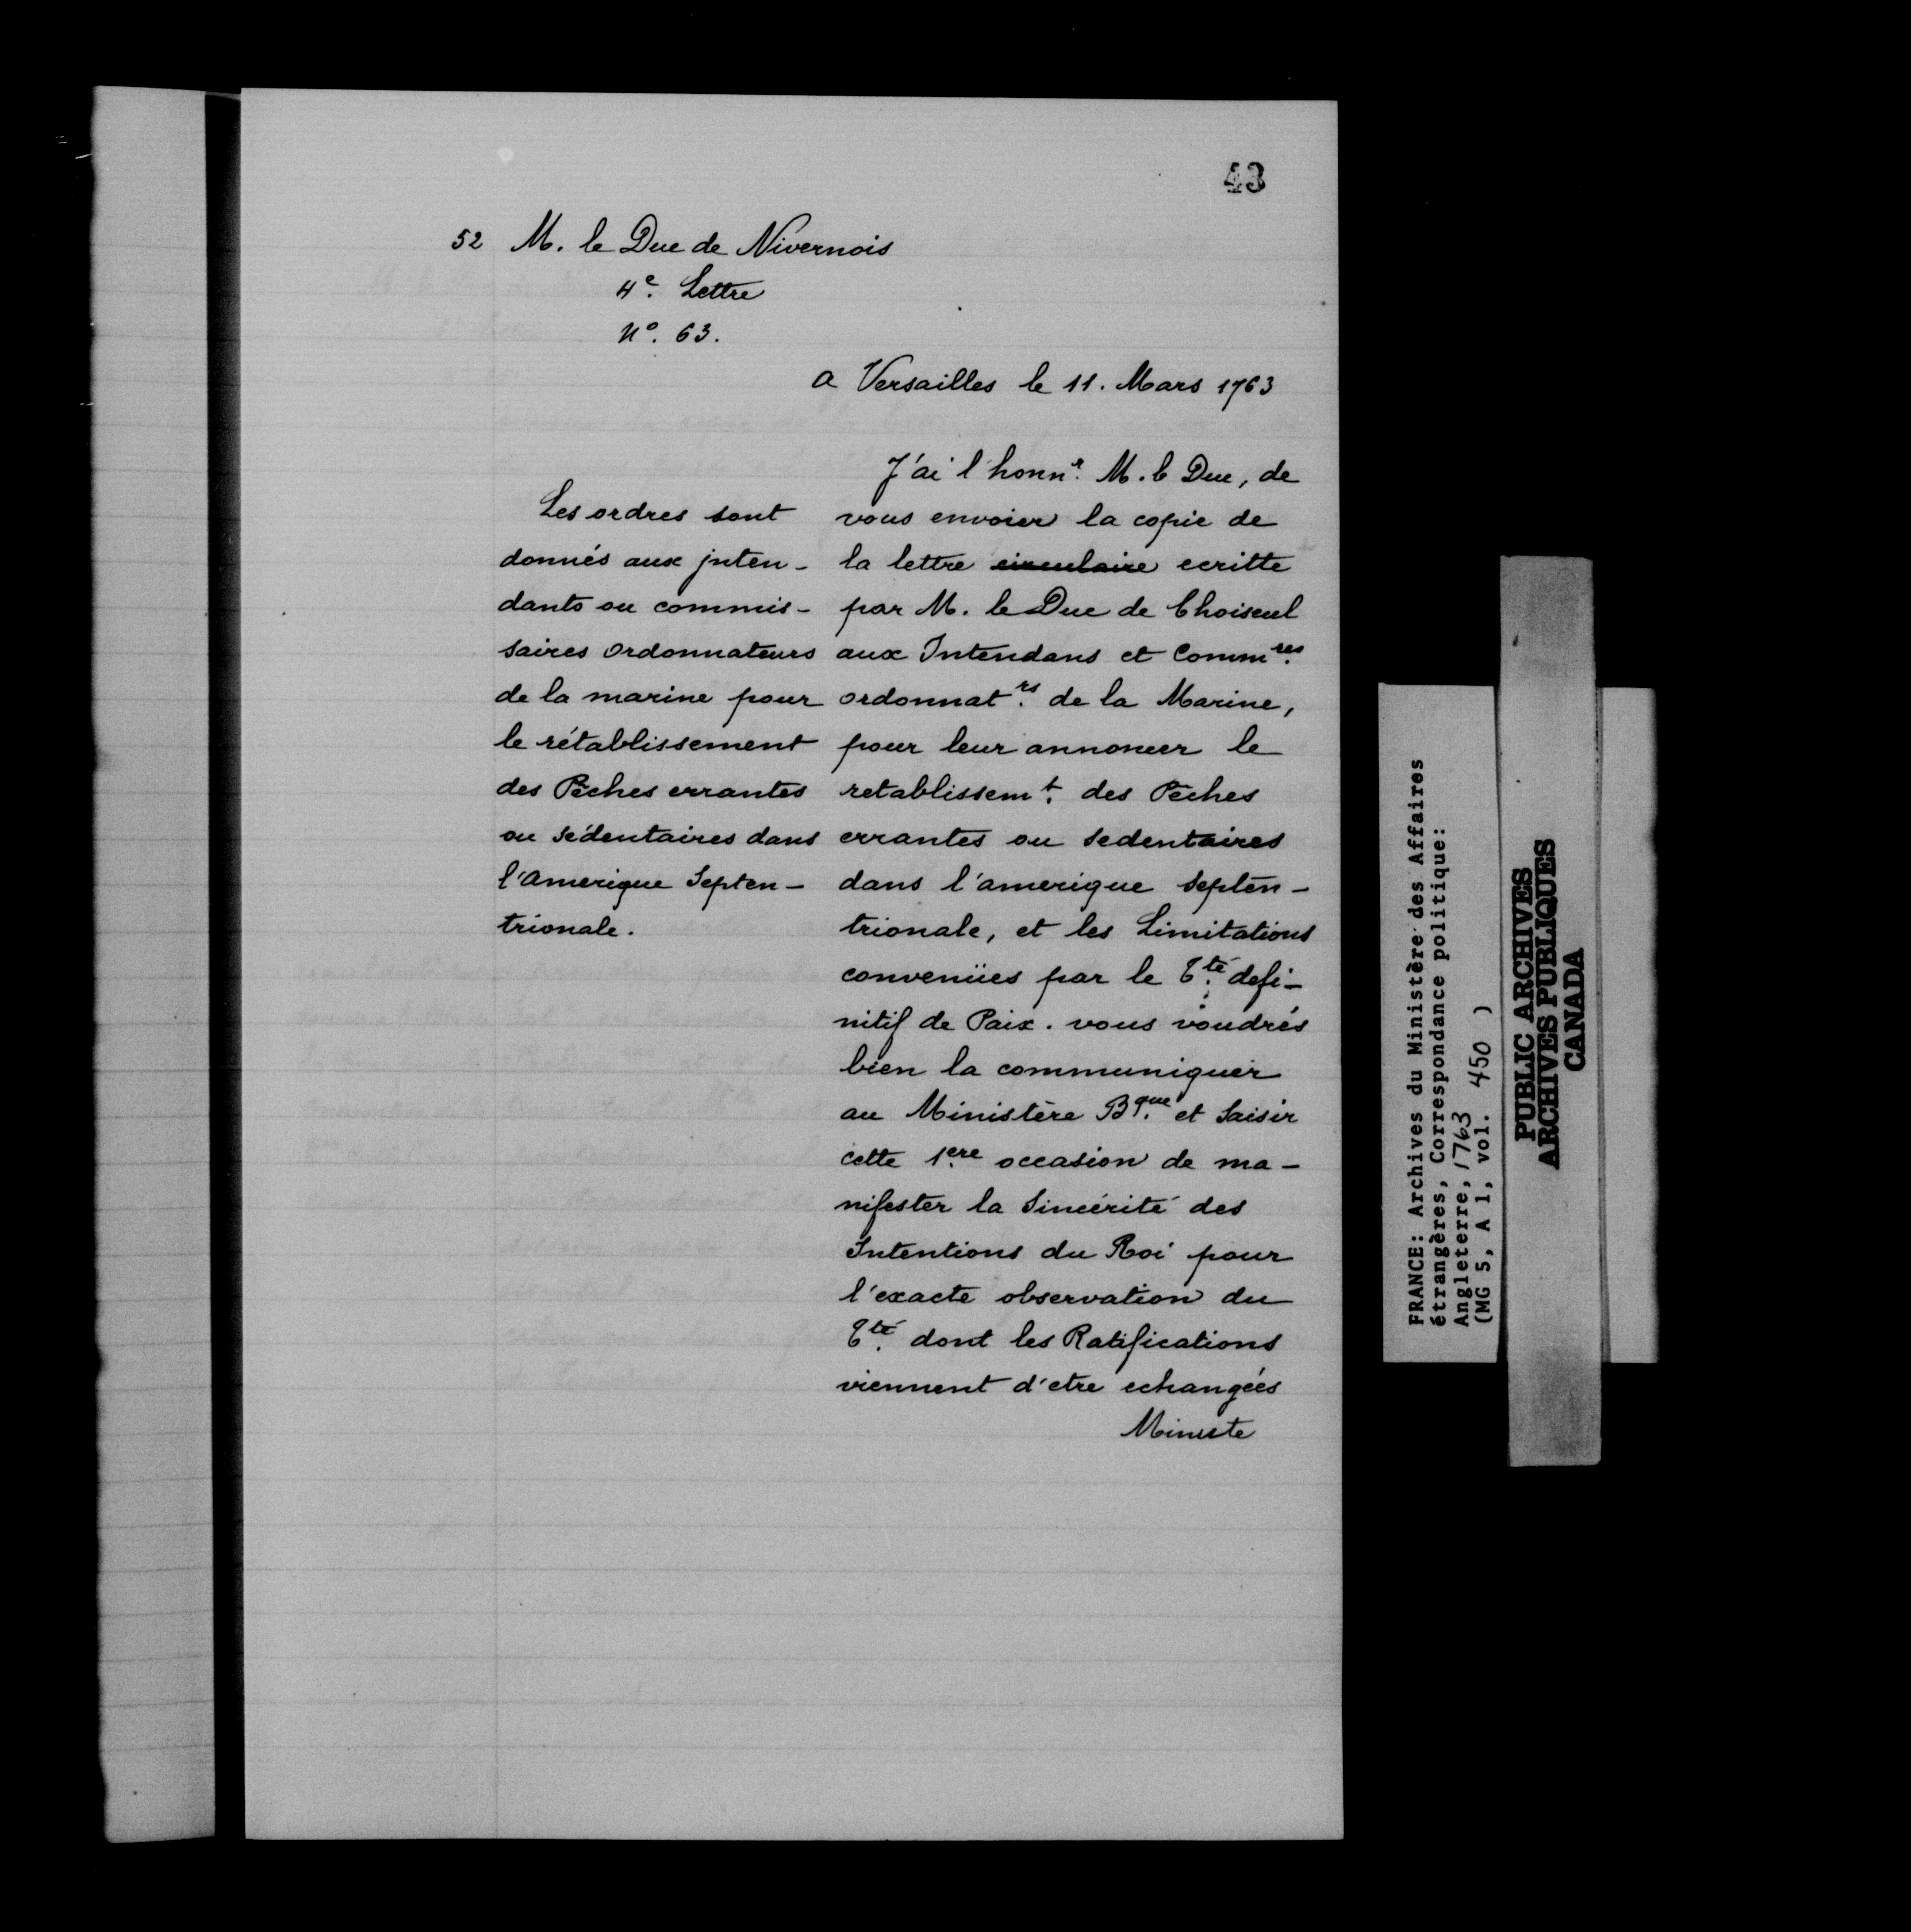 43
52 M. le Duc de Nivernois
4e. Lettre
No. 63.
a Versailles le 11. Mars 1763
Les ordres sont
donnés aux jnten-
dants ou commis-
saires ordonnateurs
de la marine pour
le rétablissement
des Pêches errantes
ou sédentaires dans
l'amerique Septen-
trionale.
J'ai l'honnr. M. le Duc, de
vous envoier la copie de
la lettre circulaire ecritte
par M. le Duc de Choiseul
aux Intendans et Commres.
ordonnatrs. de la Marine,
pour leur annoncer le
retablissemt. des Pêches
errantes ou sedentaires
dans l'amerique septen-
trionale, et les Limitations
convenües par le Tté. defi-
nitif de Paix. vous voudrés
bien la communiquer
au Ministère Bque. et saisir
cette 1ere. occasion de ma-
nifester la Sincérité des
Intentions du Roi pour
l'exacte observation du
Tté. dont les Ratifications
viennent d'etre echangées
Minute
FRANCE: Archives du Ministère des Affaires
étrangères, Correspondance politique:
Angleterre, 1763
(MG 5, A 1, vol. 450 )
PUBLIC ARCHIVES
ARCHIVES PUBLIQUES
CANADA